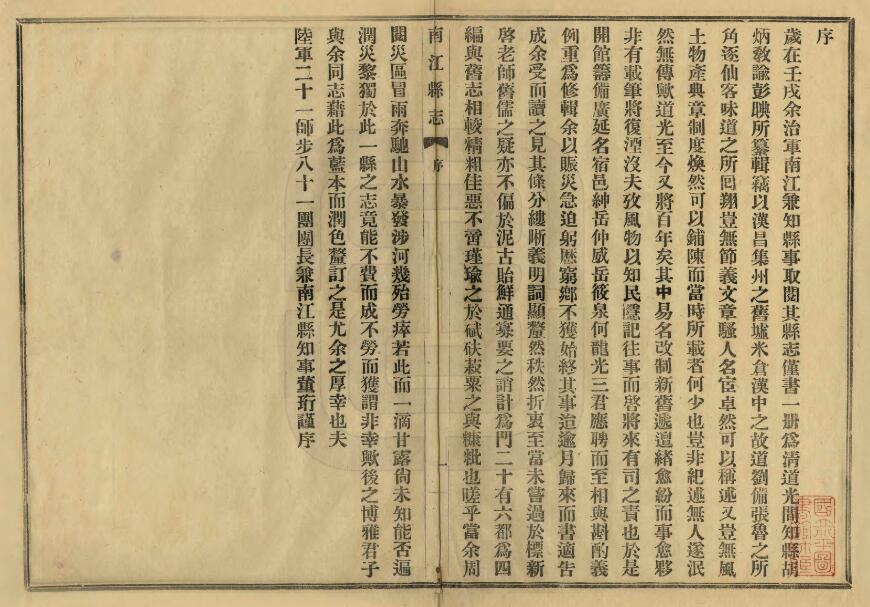 序
歲在壬戌余治軍南江兼知縣事取閱其縣志僅書一册爲清道光間知縣胡
炳敎諭彭㬎所纂輯竊以漢昌集州之舊墟米倉漢中之故道劉備張魯之所
角逐仙客味道之所回翔豈無節義文章騷人名宦卓然可以稱述又豈無風
土物產典章制度煥然可以鋪陳而當時所載者何少也豈非紀述無人遂泯
然無傳歟道光至今又將百年矣其中易名改制新舊遞邅緒愈紛而事愈夥
非有載筆將復湮沒夫攷風物以知民隱記往事而啓將來有司之責也於是
開館籌備廣延名宿邑紳岳仲威岳筱泉何龍光三君應聘而至相與斟酌義
例重爲修輯余以賑災急迫躬歷窮鄉不獲始終其事迨逾月歸來而書適告
成余受而讀之見其條分縷晰義明詞顯釐然秩然折衷至當未嘗過於標新
啓老師舊儒之疑亦不偏於泥古貽鮮通寡要之誚計爲門二十有六都爲四
編與舊志相較精粗佳惡不啻瑾瑜之於碔砆菽粟之與糠粃也嗟乎當余周
南江縣志
序
閱災區冒雨奔馳山水暴發涉河幾殆勞瘁若此而一滴甘露尙未知能否遍
潤災黎獨於此一縣之志竟能不費而成不勞而獲謂非幸歟後之博雅君子
與余同志藉此爲藍本而潤色釐訂之是尤余之厚幸也夫
陸軍二十一師步八十一團團長兼南江縣知事董珩謹序